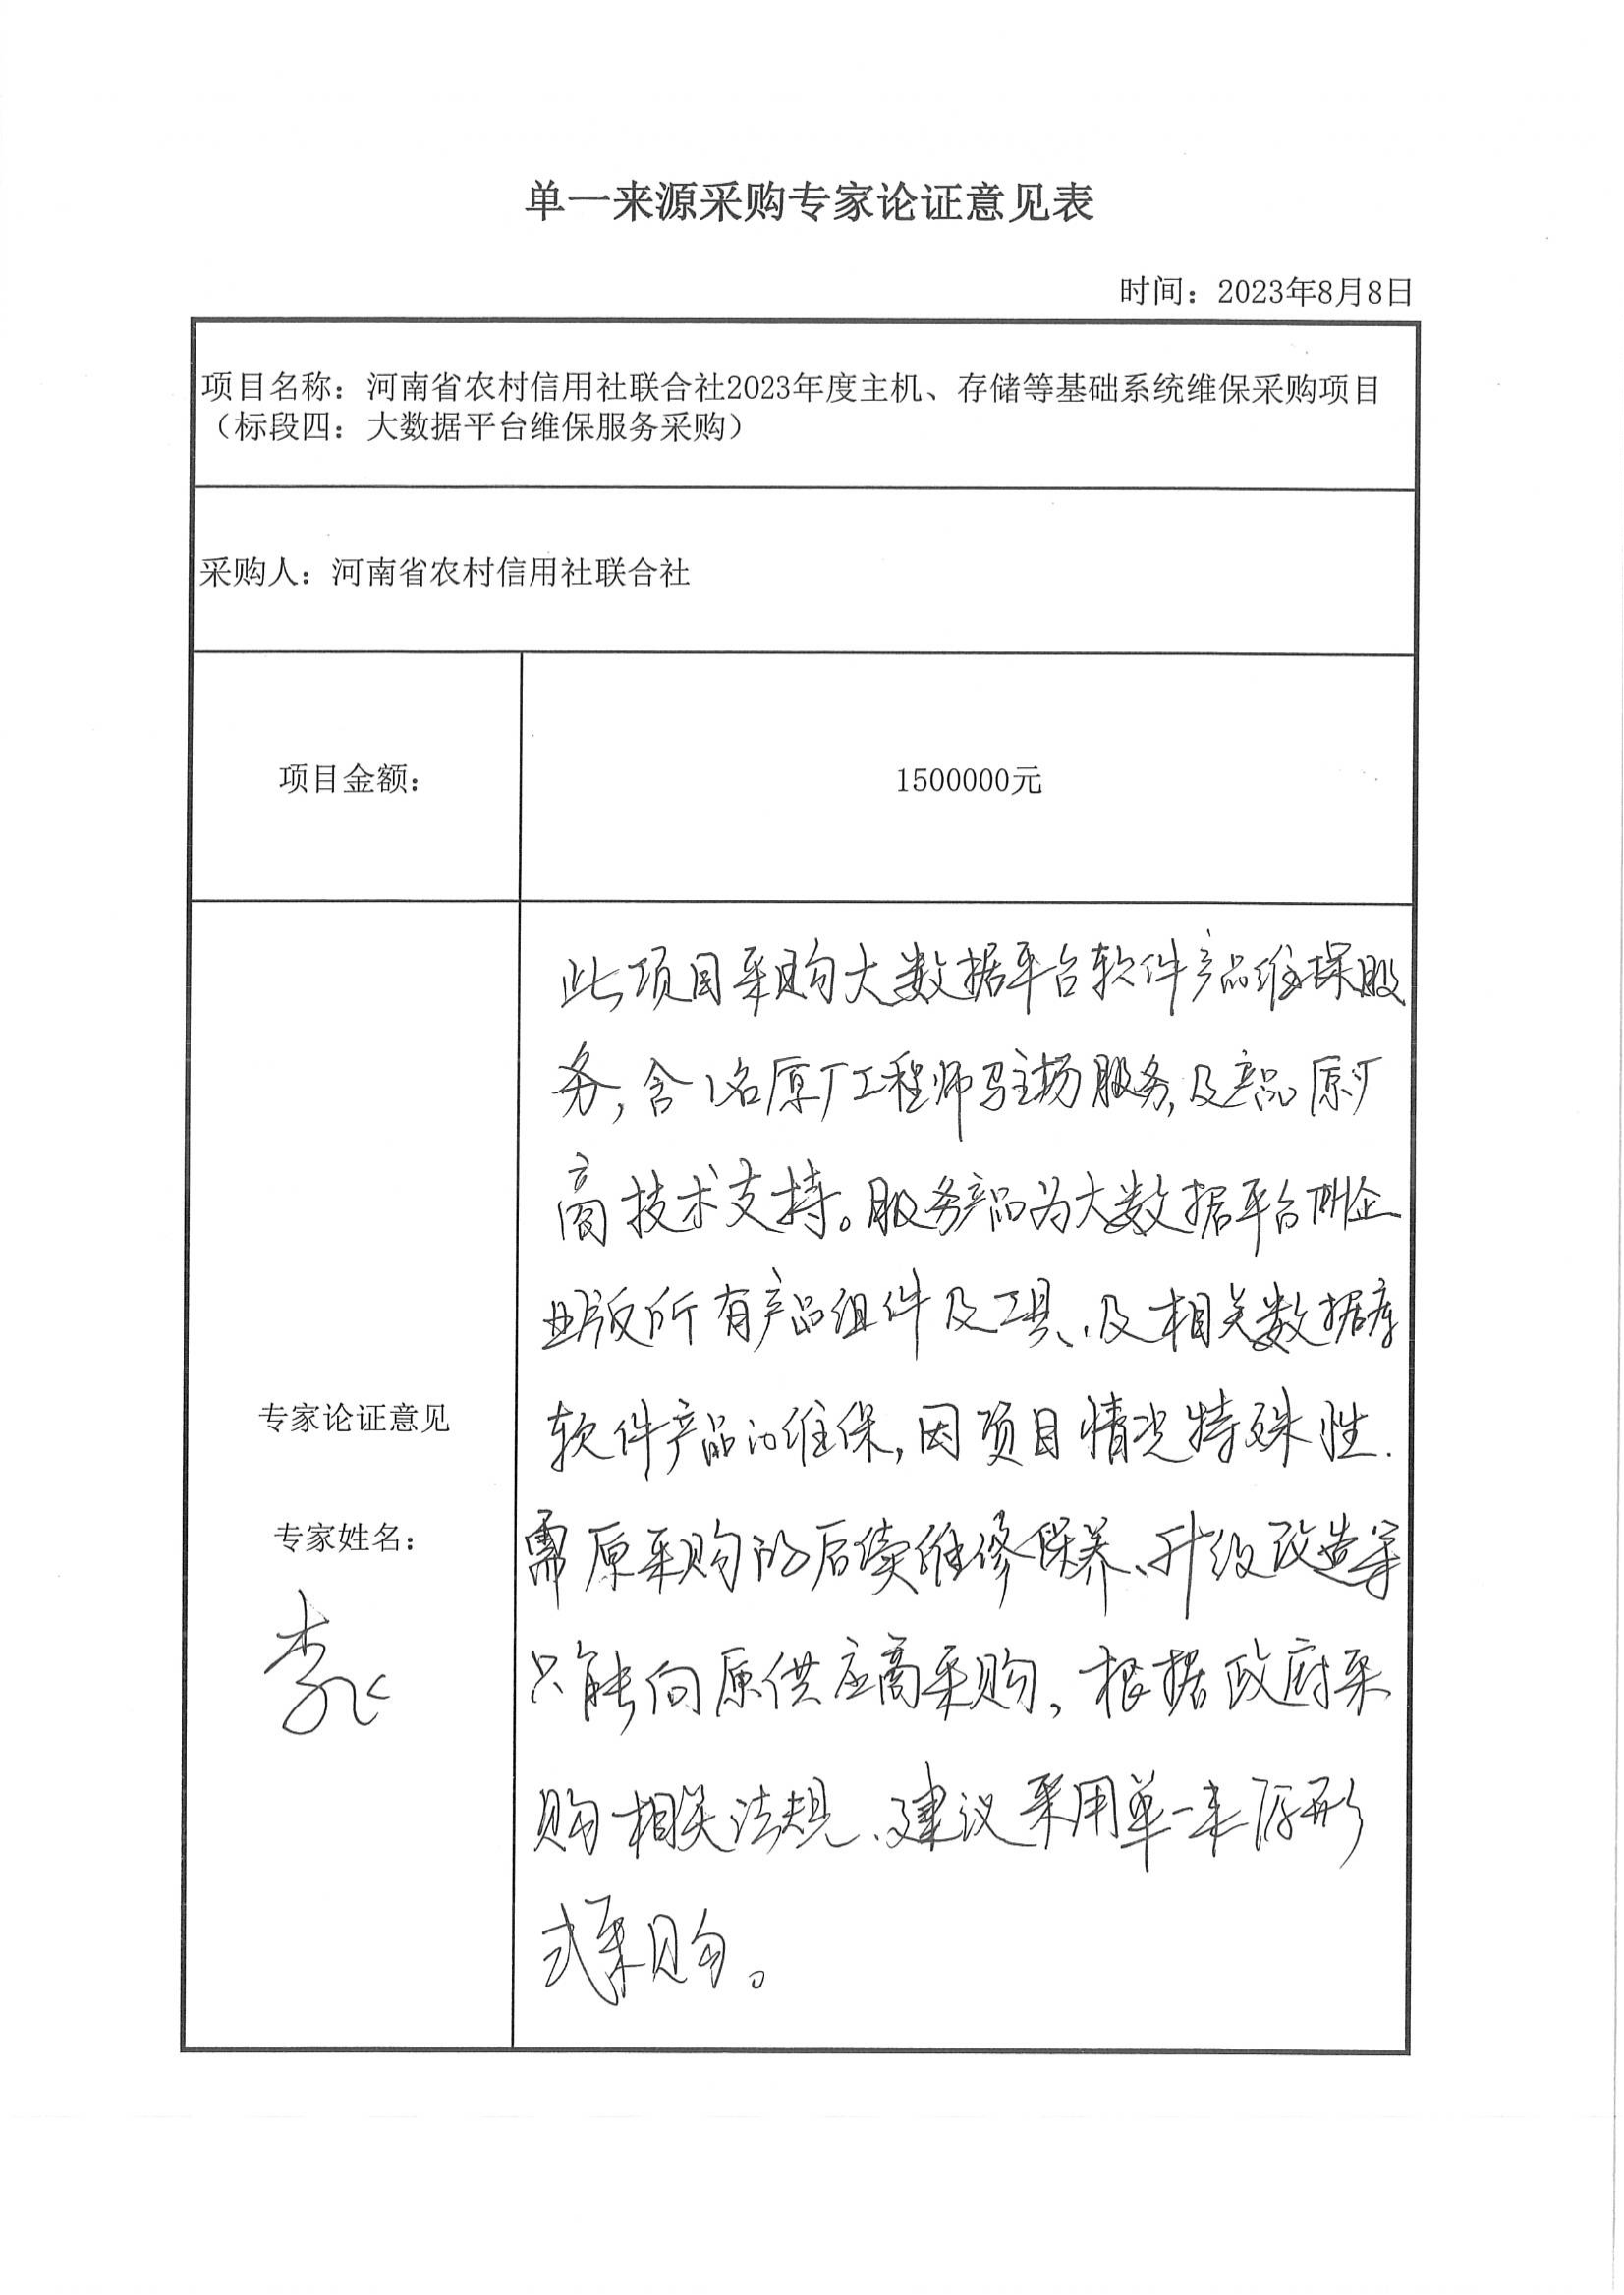 单一来源采购专家论证意见表
时间：2023年8月8日
项目名称：河南省农村信用社联合社2023年度主机、存储等基础系统维保采购项目
（标段四：大数据平台维保服务采购）
采购人：河南省农村信用社联合社
项目金额：
1500000元
专家论证意见
专家姓名：
此项目采购大数据平台软件产品维保服
务，含1名原厂工程师驻场服务，及产品原厂
商技术支持。服务产品为大数据平台TDH企
业版所有产品组件及工具、及相关数据库
软件产品的维保，因项目情况特殊性.
需原采购的后续维修保养、升级改造等
只能向原供应商采购，根据政府采
购相关法规、建议采用单一来源形
式采购。